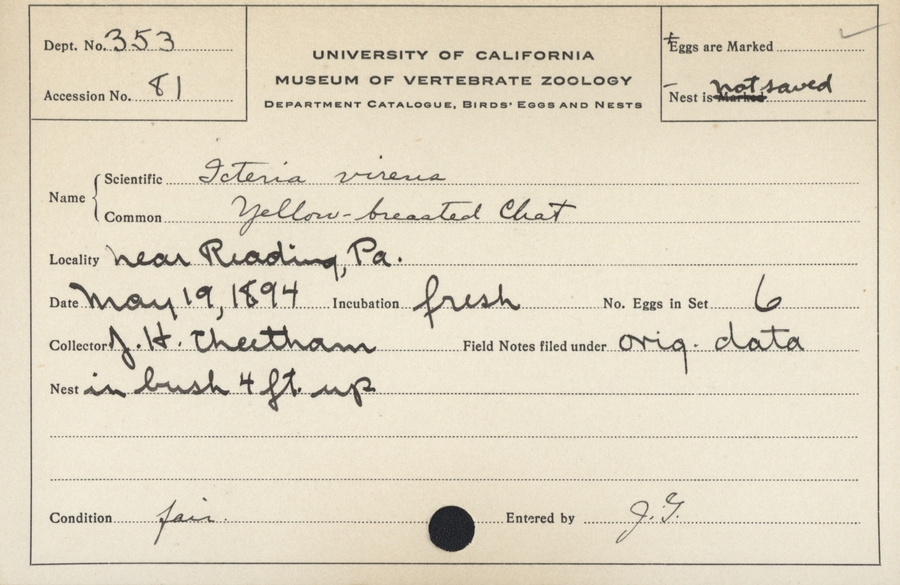 Dept. No. 353
Accession No. 81
UNIVERSITY OF CALIFORNIA
MUSEUM OF VERTEBRATE ZOOLOGY
DEPARTMENT CATALOGUE, BIRDS' EGGS AND NESTS
Eggs are Marked
Nest is Marked not saved
Name
Scientific Icteria virens
Common Yellow-breasted Chat
Locality near Reading, Pa.
Date May 19, 1894 Incubation fresh No. Eggs in Set 6
Collector J. H. Cheetham Field Notes filed under orig. data
Nest in bush 4 ft. up
Condition fair. Entered by J. G.